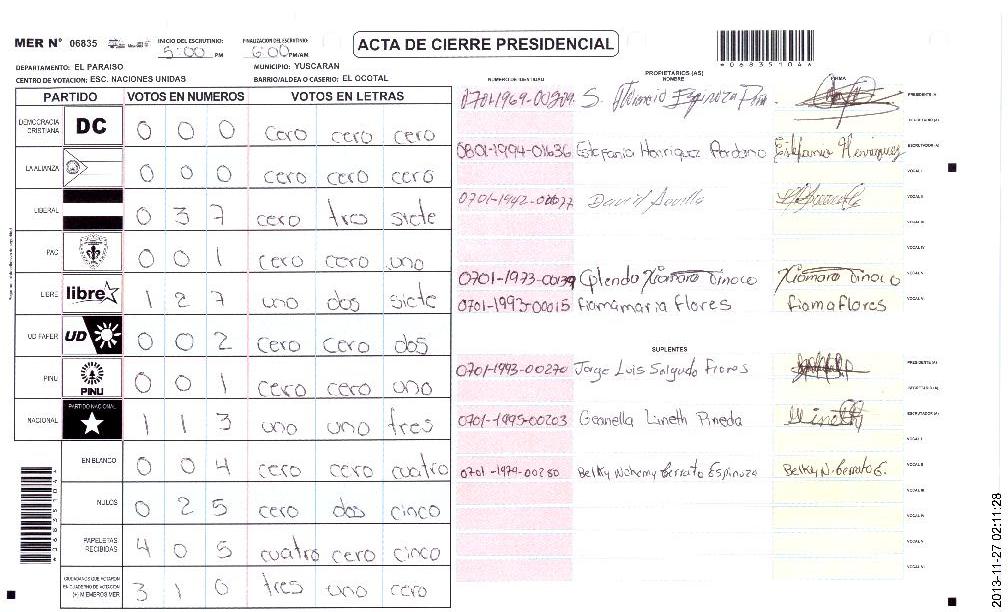 MER N° 06835 INICIO DEL ESCRUTINIO: 5:00 PM FINALIZACION DEL ESCRUTINIO: 6:00 PM/AM
ACTA DE CIERRE PRESIDENCIAL
DEPARTAMENTO: EL PARAISO MUNICIPIO: YUSCARAN
CENTRO DE VOTACION: ESC. NACIONES UNIDAS BARRIO/ALDEA O CASERIO: EL OCOTAL
PARTIDO VOTOS EN NUMEROS VOTOS EN LETRAS
DEMOCRACIA CRISTIANA DC 0 0 0 cero cero cero
LA ALIANZA 0 0 0 cero cero cero
LIBERAL 0 3 7 cero tres siete
PAC 0 0 1 cero cero uno
LIBRE libre 1 2 7 uno dos siete
UD FAPER UD 0 0 2 cero cero dos
PINU PINU 0 0 1 cero cero uno
NACIONAL PARTIDO NACIONAL 1 1 3 uno uno tres
EN BLANCO 0 0 4 cero cero cuatro
NULOS 0 2 5 cero dos cinco
PAPELETAS RECIBIDAS 4 0 5 cuatro cero cinco
CIUDADANOS QUE VOTARON EN CUADERNO DE VOTACION (+) MIEMBROS MER 3 1 0 tres uno cero
*06835104*
NUMERO DE IDENTIDAD PROPIETARIOS (AS) NOMBRE FIRMA
S. PRESIDENTE (A)
SECRETARIO (A)
0801-1994-01636 Estefania Henriquez Estefania Henriquez ESCRUTADOR (A)
VOCAL I
David VOCAL II
VOCAL III
VOCAL IV
0701-1973-00139 Xiomara Tinoco Xiomara Tinoco VOCAL V
0701-1993-00015 fiamamaria flores fiamaflores VOCAL VI
SUPLENTES
0701-1993-00270 Jorge Luis Salgado Flores PRESIDENTE (A)
SECRETARIO (A)
0701-1995-00203 Geanella Lineth Pineda Lineth ESCRUTADOR (A)
VOCAL I
0701-1979-00280 Belky Nohemy Berrato Espinoza Belky N. Berrato E. VOCAL II
VOCAL III
VOCAL IV
VOCAL V
VOCAL VI
2013-11-27 02:11:28